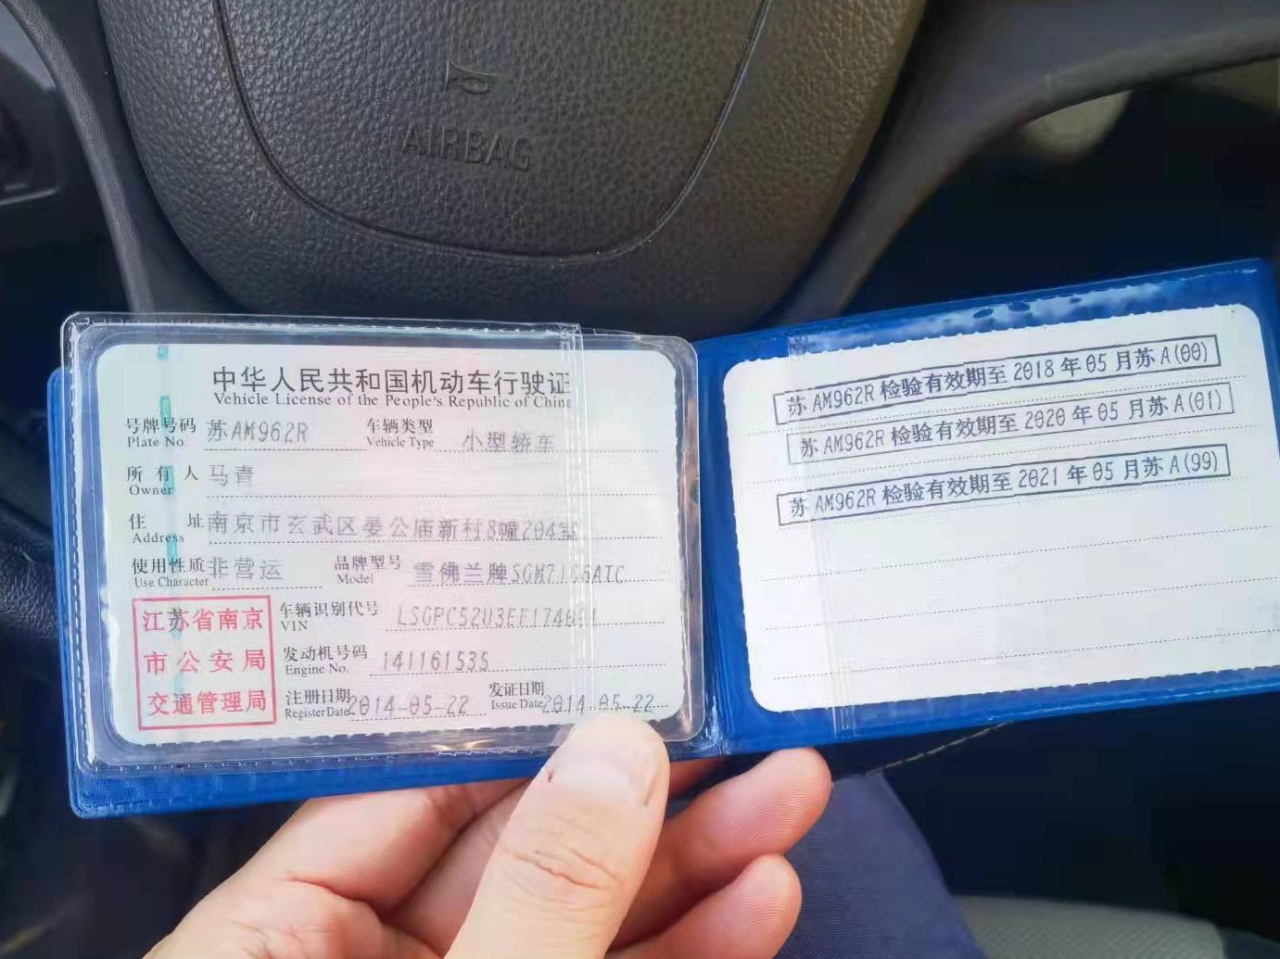 AIRBAG
中华人民共和国机动车行驶证
Vehicle License of the People's Republic of China
号牌号码 苏AM962R 车辆类型 小型轿车
Plate No. Vehicle Type
所有人 马青
Owner
住址 南京市玄武区晏公庙新村8幢204室
Address
使用性质 非营运 品牌型号 雪佛兰牌
Use Character Model
江苏省南京
市公安局
交通管理局
车辆识别代号
VIN
发动机号码 141161535
Engine No.
注册日期 2014-05-22 发证日期 2014-05-22
Register Date Issue Date
苏AM962R检验有效期至2018年05月苏A(00)
苏AM962R检验有效期至2020年05月苏A(01)
苏AM962R检验有效期至2021年05月苏A(99)